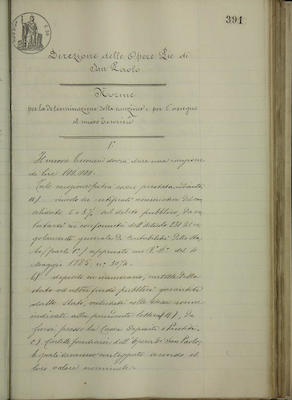 391
Direzione delle Opere Pie di
San Paolo
Norme
per la determinazione della cauzione e per l'consegne
al nuovo Tesoriere
1°
Il nuovo Tesoriere dovrà dare una cauzione
di lire 100,000.
Tale cauzione potrà essere prestata
a) vincolo de' certificati nominativi del con
solidato 5 o 3% sul debito pubblico, da
in conformità dell'articolo 231 del re
golamento generale di Contabilità dello Sta
to (parte 1ª) approvato con R. D. del 4
Maggio 1885, n° 3074.
b) deposito in numerario, cartelle dello
stato od altri fondi pubblici garantiti
dallo Stato, nelle
indicati alla precedente lettera a), da
farsi presso la Cassa Depositi e Prestiti.
c) Cartelle fondiarie dell'Opera di San Paolo,
le quali saranno secondo il
loro valore nominale.